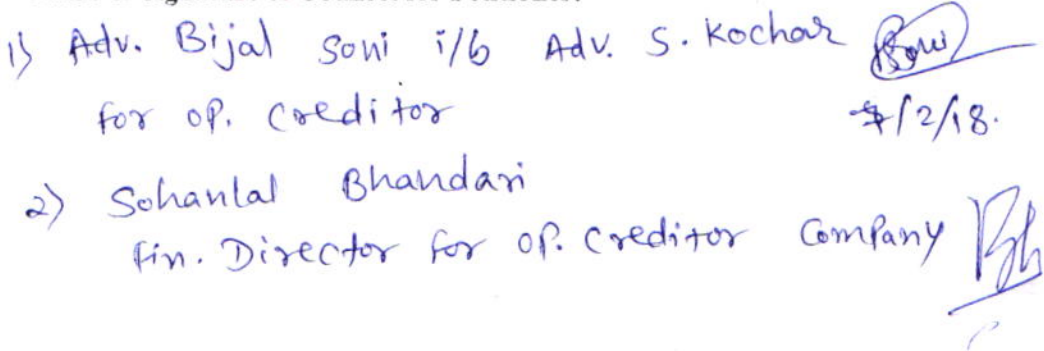 1) Adv. Bijal Soni i/b Adv. S. Kochar
for op. Creditor
7/2/18.
2) Sohanlal Bhandari
Fin. Director for op. Creditor Company